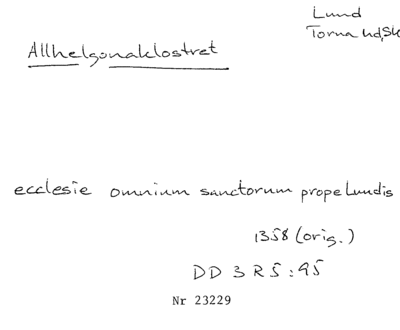 Lund
Torna hd, Sk
Allhelgonaklostret
ecclesie omnium sanctorum prope Lundis
1358 (orig.)
DD 3 R 5 : 95
Nr 23229